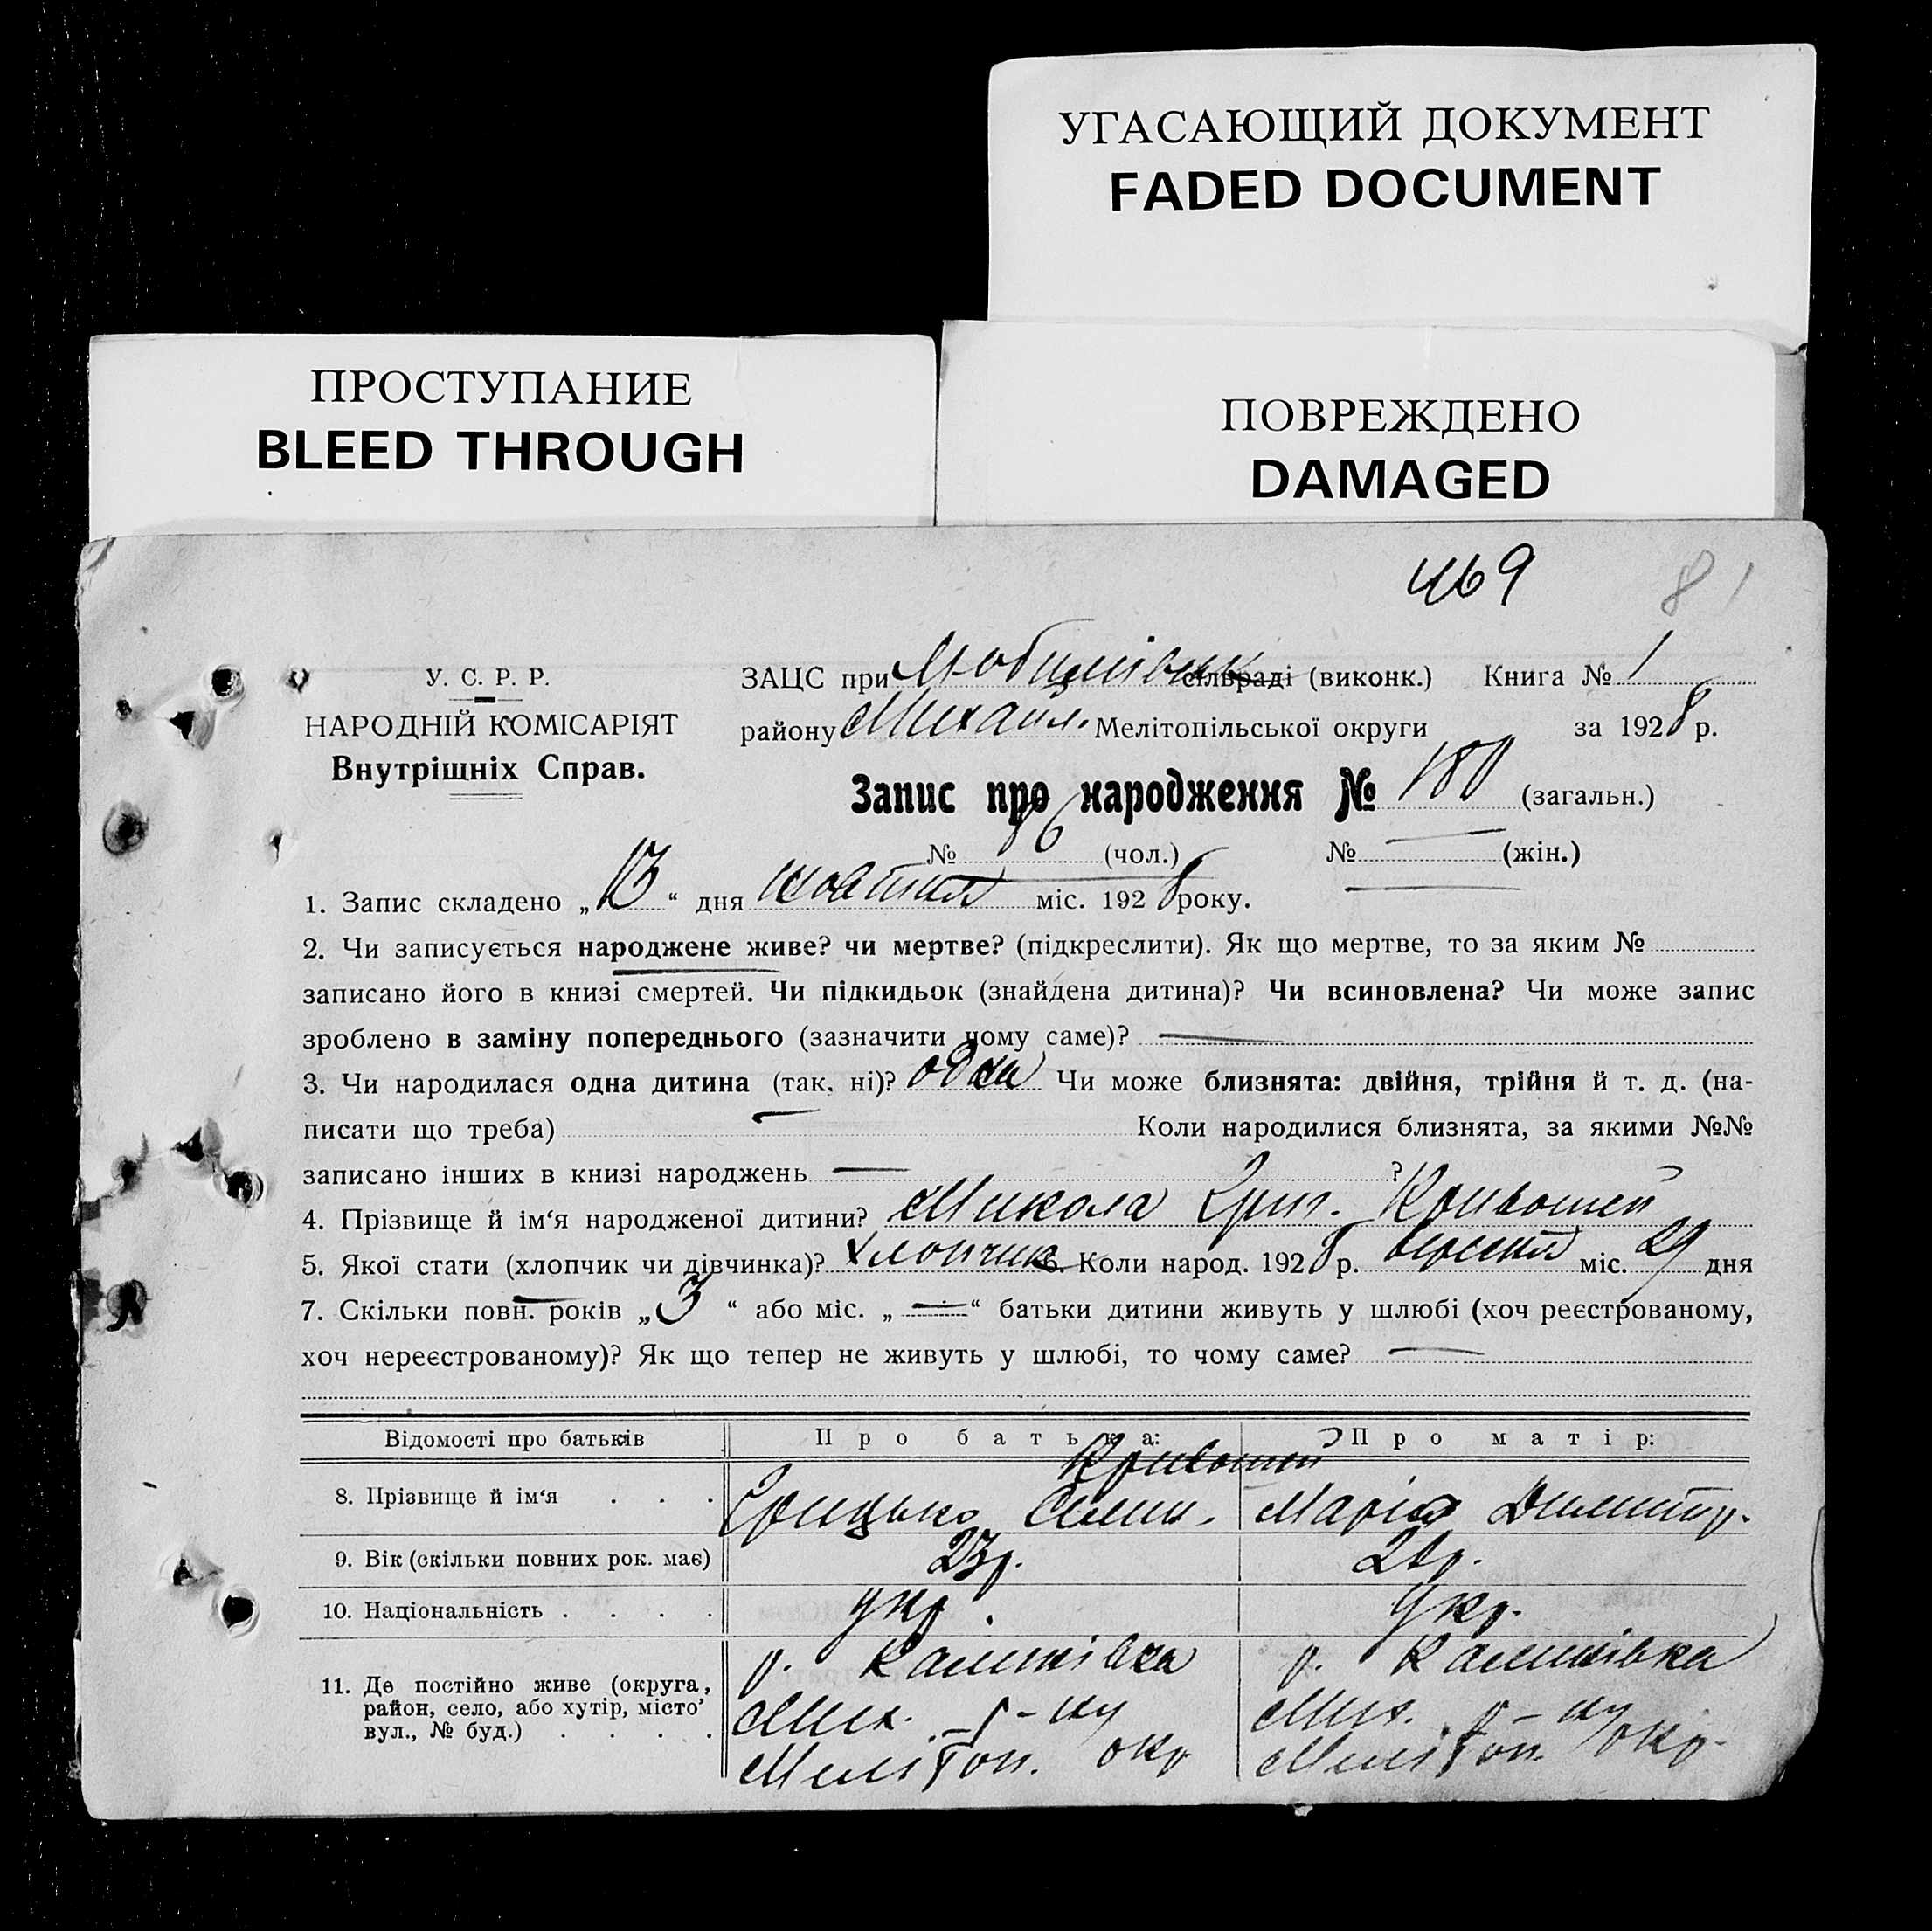 УГАСАЮЩИЙ ДОКУМЕНТ
FADED DOCUMENT
ПРОСТУПАНИЕ
BLEED THROUGH
ПОВРЕЖДЕНО
DAMAGED
469 81
У. С. Р. Р.
НАРОДНІЙ КОМІСАРІЯТ
Внутрішніх Справ.
ЗАЦС при Любимівськ сільраді (виконк.) Книга № 1
району Михайл. Мелітопільської округи за 1928 р.
Запис про народження № 180 (загальн.)
№ 86 (чол.) № — (жін.)
1. Запис складено „13“ дня жовтня міс. 1928 року.
2. Чи записується народжене живе? чи мертве? (підкреслити). Як що мертве, то за яким №
записано його в книзі смертей. Чи підкидьок (знайдена дитина)? Чи всиновлена? Чи може запис
зроблено в заміну попереднього (зазначити чому саме)? —
3. Чи народилася одна дитина (так, ні)? одна Чи може близнята: двійня, трійня й т. д. (на-
писати що треба) — Коли народилися близнята, за якими №№
записано інших в книзі народжень — ?
4. Прізвище й ім‘я народженої дитини? Микола Григ. Кривошей
5. Якої стати (хлопчик чи дівчинка)? хлопчик 6. Коли народ. 1928 р. вересня міс. 29 дня
7. Скільки повн. років „3“ або міс. „—“ батьки дитини живуть у шлюбі (хоч реєстрованому,
хоч нереєстрованому)? Як що тепер не живуть у шлюбі, то чому саме? —
Відомості про батьків Про батька: Про матір:
Кривошеи
8. Прізвище й ім‘я . . . . Грицько Семен. Марія Димитр.
9. Вік (скільки повних рок. має) 23р. 20р.
10. Національність . . . . укр. укр.
11. Де постійно живе (округа, район, село, або хутір, місто’ вул., № буд.) . . . .
Мих. р-ну Мих. р-ну
Меліտоп. окр Меліտоп. окр.